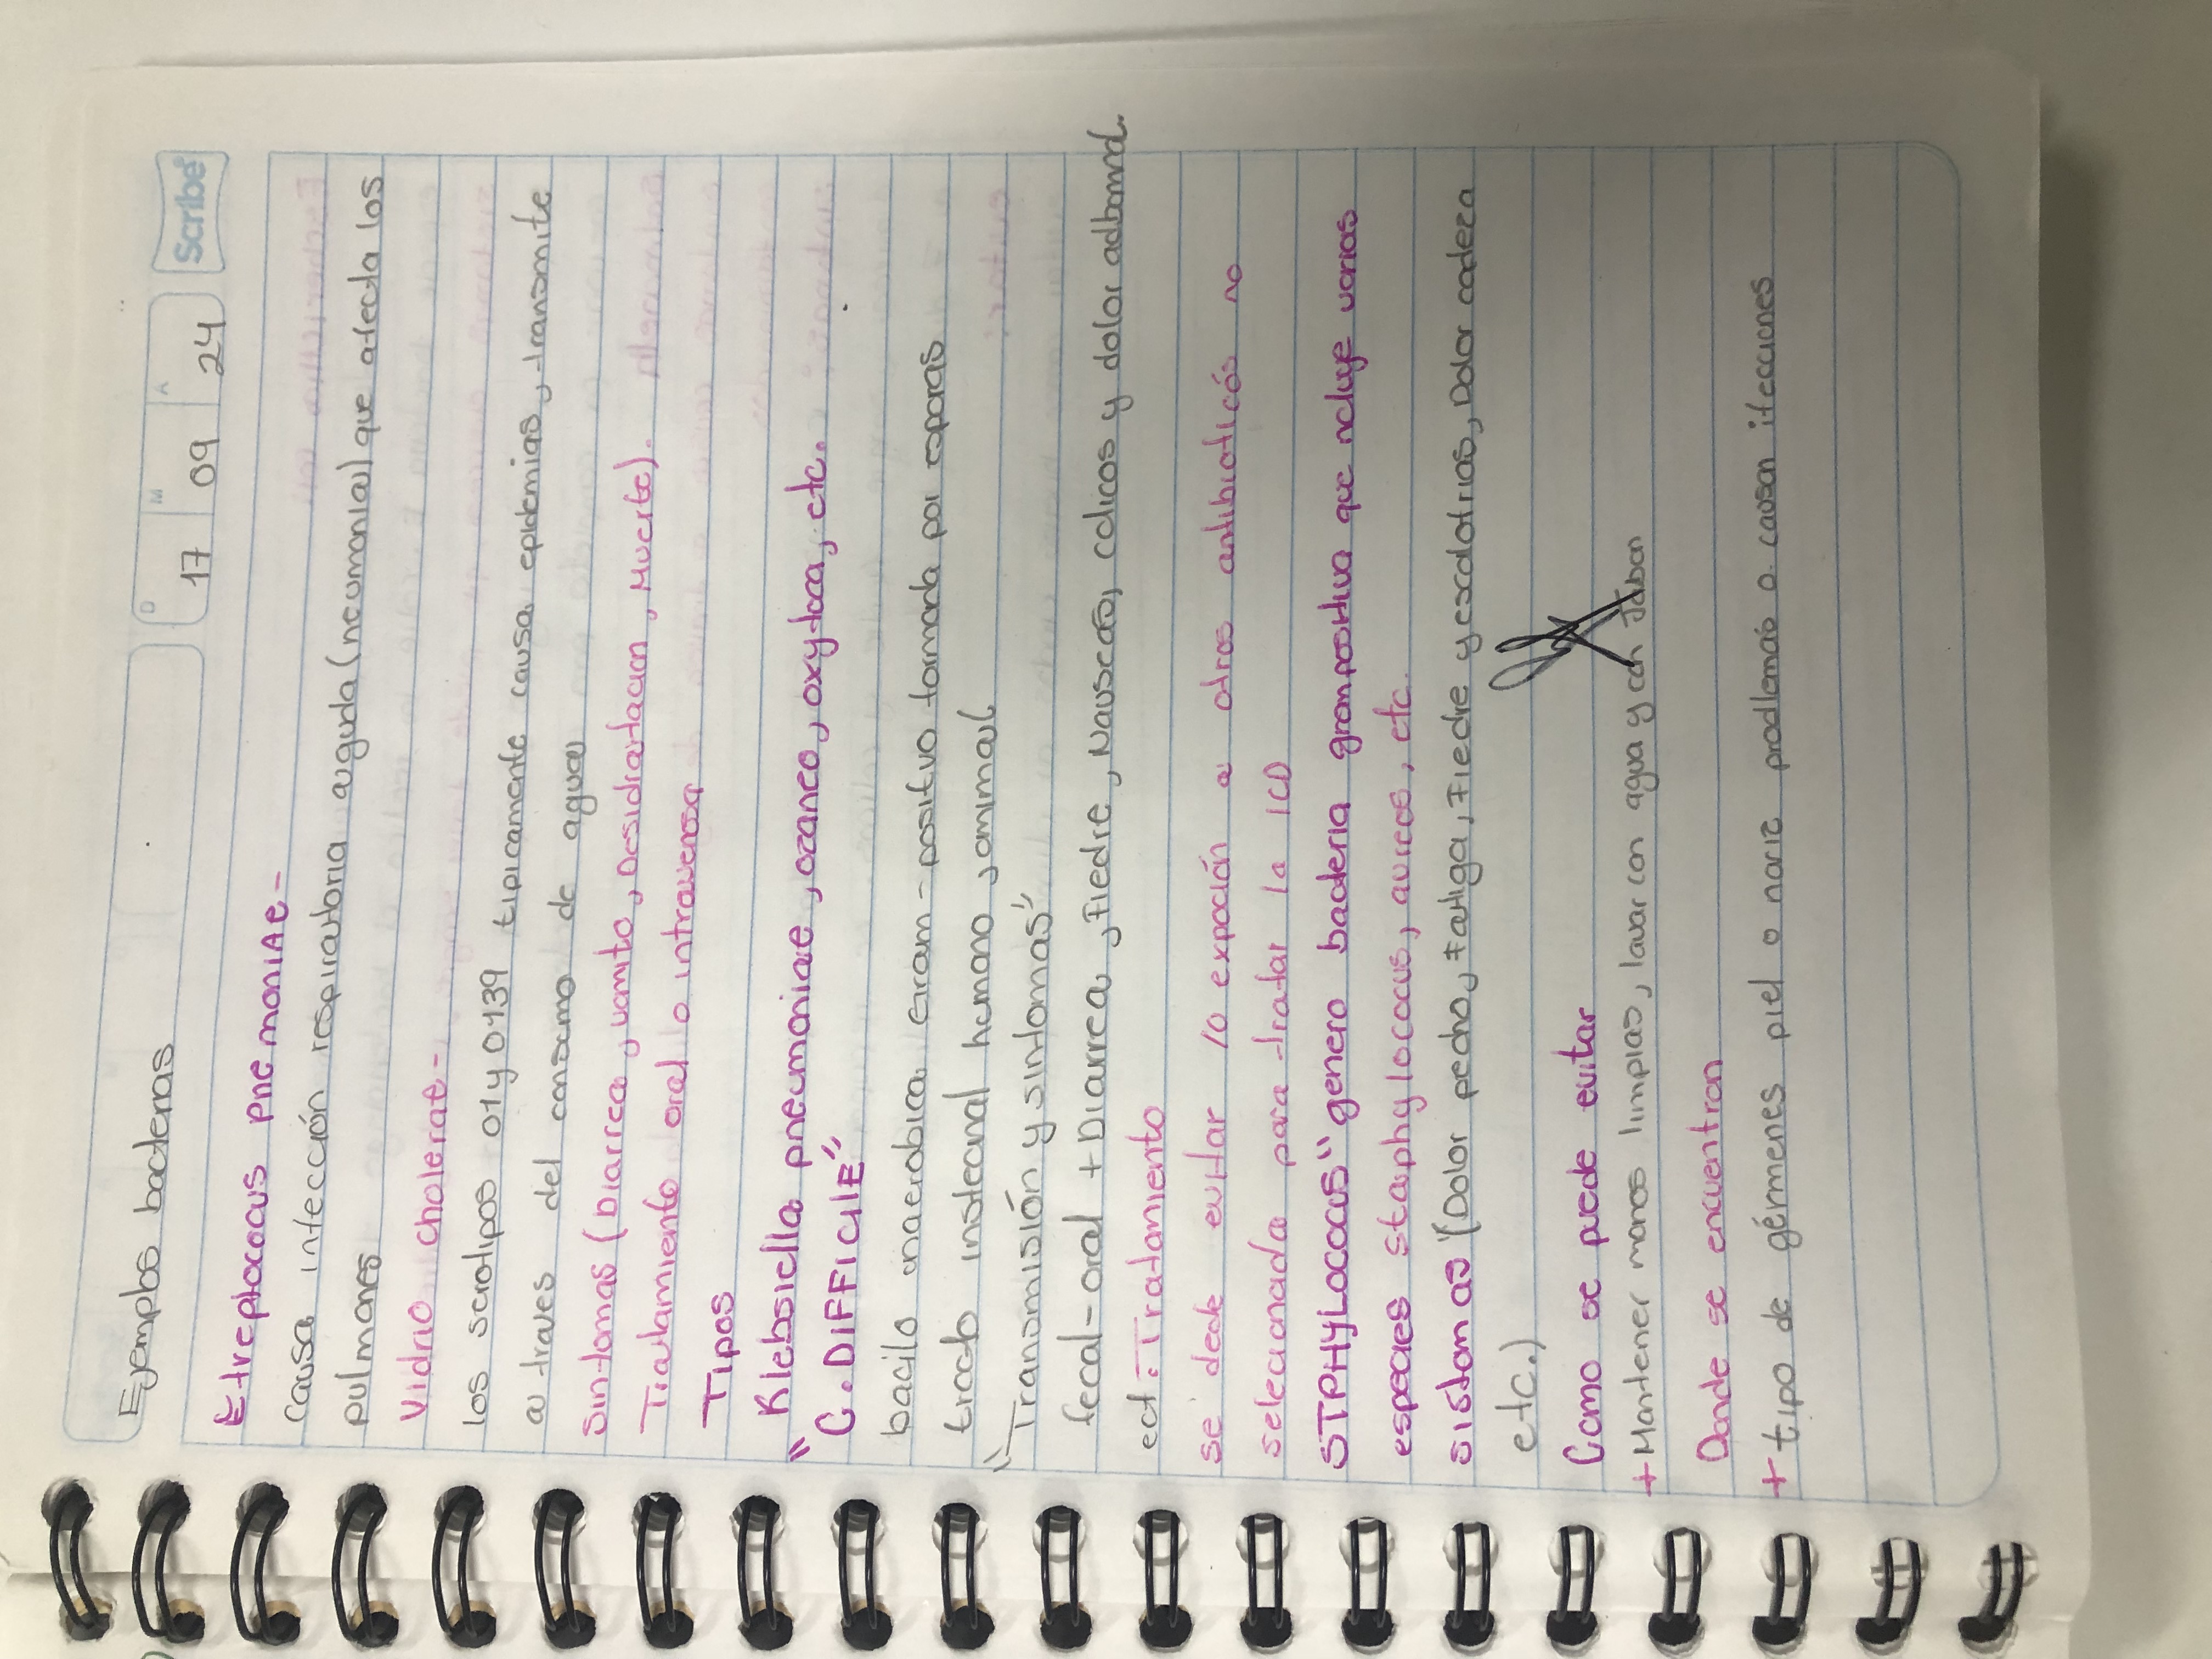 D M A
17 09 24
Scribe
Ejemplos bacterias
Estreptococus pnemoniae-
causa infección respiratoria aguda (neumonia) que afecta los
pulmones
Vidrio cholerae-
los serotipos 01 y 0139 tipicamente causa epidemias, transmite
a traves del consumo de agua
Sintomas (Diarrea, vomito, Desidratacion, Muerte).
Tratamiento oral o intravenosa
Tipos
Klebsiella pneumoniae, ozaneo, oxytoca, etc.
"C. DIFFICILE"
bacilo anaerobica Gram-positivo formada por esporas
tracto insteonal humano, animal
"Transmisión y sintomas"
fecal-oral + Diarrea, Fiedre, Nauseas, colicos y dolor adbomnal.
ect. Tratamiento
se dede evitar la expoción a otros antibioticós no
selecionada para tratar la ICD
STPHYLOCOCUS" genero bacteria grampositiva que ncluye varias
especies staphylococus, aureos, etc.
sistomas (Dolor pecho, Fatiga, Fiedre y escalofrios, Dolor cadeza
etc.)
Como se puede evitar
+ Mantener manos limpias, lavar con agua y con Jabon
Donde se encuentran
+ tipo de gérmenes piel o nariz prodlemas o causan ifecciones